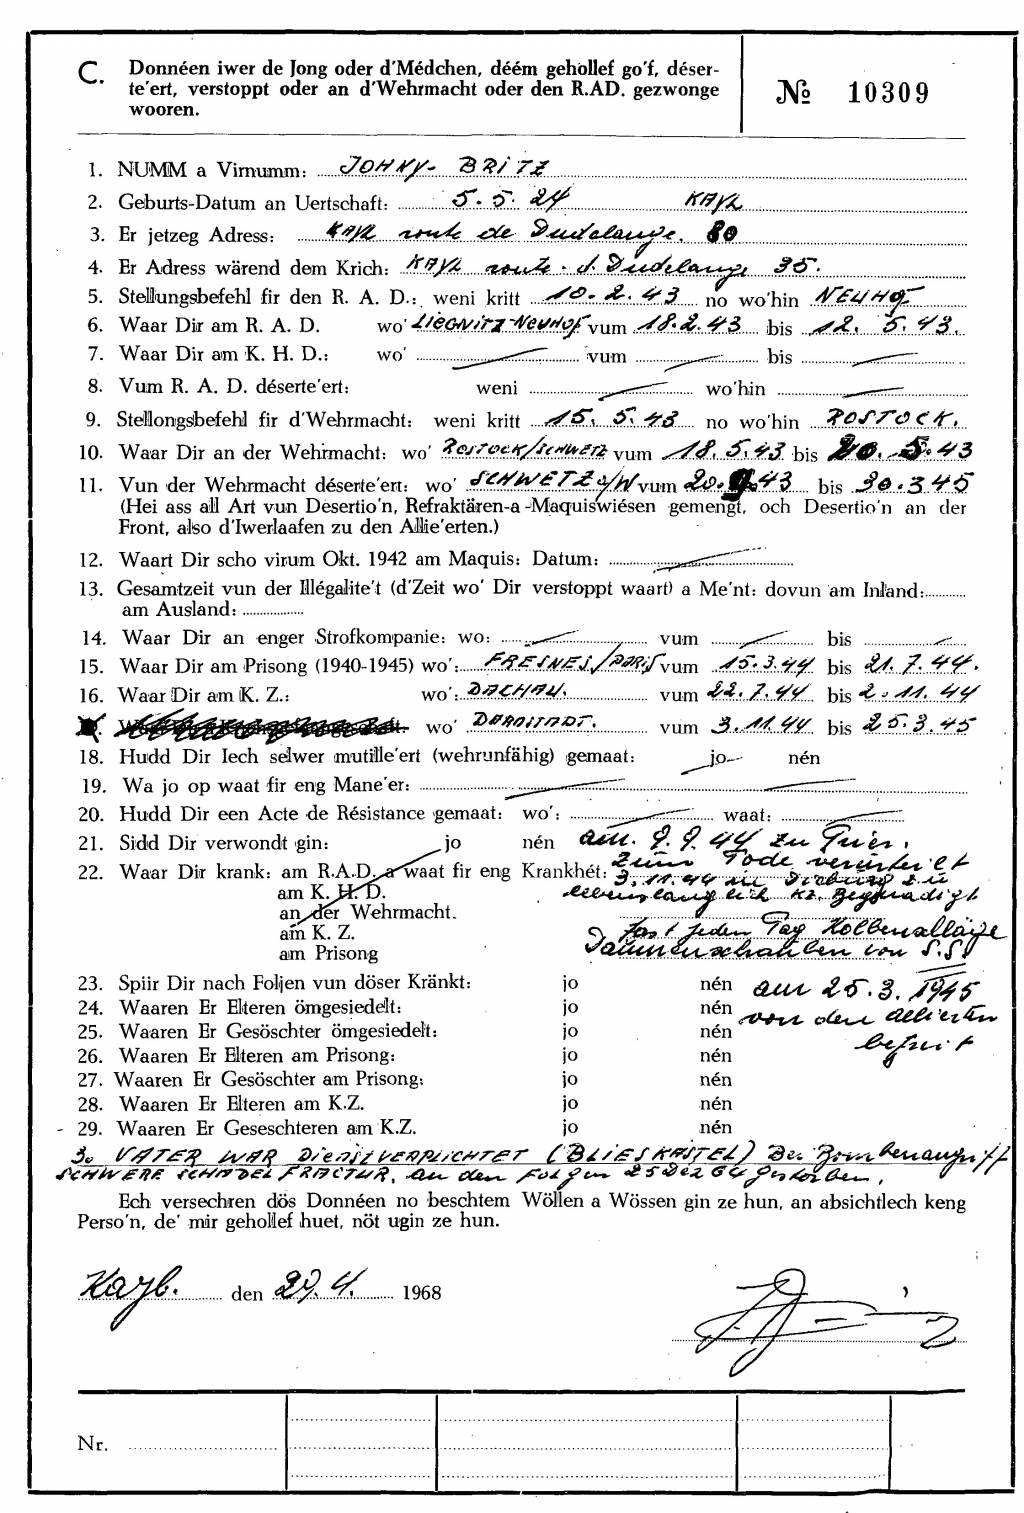 C. Donnéen iwer de Jong oder d'Médchen, déém gehollef go'f, déser-
te'ert, verstoppt oder an d'Wehrmacht oder den R.AD. gezwonge
wooren.
№ 10309
1. NUMM a Virnumm: JOHNY- BRITZ
2. Geburts-Datum an Uertschaft: 5. 5. 24 KAYL
3. Er jetzeg Adress: KAYL route de Dudelange. 80
4. Er Adress wärend dem Krich: KAYL route. d. Dudelange 35.
5. Stellungsbefehl fir den R. A. D.: weni kritt 10. 2. 43 no wo'hin NEUHOF
6. Waar Dir am R. A. D. wo' LIEGNITZ-NEUHOF vum 18.2.43 bis 12. 5. 43.
7. Waar Dir am K. H. D.: wo' vum bis
8. Vum R. A. D. déserte'ert: weni wo'hin
9. Stellongsbefehl fir d'Wehrmacht: weni kritt 15. 5. 43 no wo'hin ROSTOCK.
10. Waar Dir an der Wehrmacht: wo' ROSTOCK/SCHWETZ vum 18. 5. 43 bis 20. 5. 43
11. Vun der Wehrmacht déserte'ert: wo' SCHWETZ a/W vum 20. 9. 43 bis 30. 3. 45
(Hei ass all Art vun Desertio'n, Refraktären-a -Maquiswiésen gemengt, och Desertio'n an der
Front, also d'Iwerlaafen zu den Allie'erten.)
12. Waart Dir scho virum Okt. 1942 am Maquis: Datum:
13. Gesamtzeit vun der Illégalite't (d'Zeit wo' Dir verstoppt waart) a Me'nt: dovun am Inland:
am Ausland:
14. Waar Dir an enger Strofkompanie: wo: vum bis
15. Waar Dir am Prisong (1940-1945) wo': FRESNES/PARIS vum 15. 3. 44 bis 21. 7. 44.
16. Waar Dir am K. Z.: wo': DACHAU. vum 22. 7. 44 bis 2. 11. 44
wo' DARMSTADT. vum 3. 11. 44 bis 25. 3. 45
18. Hudd Dir Iech selwer mutille'ert (wehrunfähig) gemaat: jo nén
19. Wa jo op waat fir eng Mane'er:
20. Hudd Dir een Acte de Résistance gemaat: wo': waat:
21. Sidd Dir verwondt gin: jo nén am. 9. 9. 44 zu Trier.
22. Waar Dir krank: am R.A.D. a waat fir eng Krankhét: Zum Tode verurteilt
am K. H. D. 3. 11. 44 in Dieburg zu
an der Wehrmacht. lebenslänglich KZ. Begnadigt
am K. Z. fast jeden Tag Kolbenschläge
am Prison​g Daumenschrauben von S.S
23. Spiir Dir nach Foljen vun döser Kränkt: jo nén am 25. 3. 1945
24. Waaren Er Elteren ömgesiedelt: jo nén von den Allierten
25. Waaren Er Gesöschter ömgesiedelt: jo nén befreit
26. Waaren Er Elteren am Prisong: jo nén
27. Waaren Er Gesöschter am Prisong: jo nén
28. Waaren Er Elteren am K.Z. jo nén
29. Waaren Er Geseschteren am K.Z. jo nén
30 VATER WAR DIENSTVERPLICHTET (BLIESKASTEL) Bei Bombenangriff
SCHWERE SCHÄDEL FRACTUR. An den Folgen 25 Dez 64 gestorben.
Ech versechren dös Donnéen no beschtem Wöllen a Wössen gin ze hun, an absichtlech keng
Perso'n, de' mir gehollef huet, nöt ugin ze hun.
Kayl. den 29. 4. 1968
Nr.